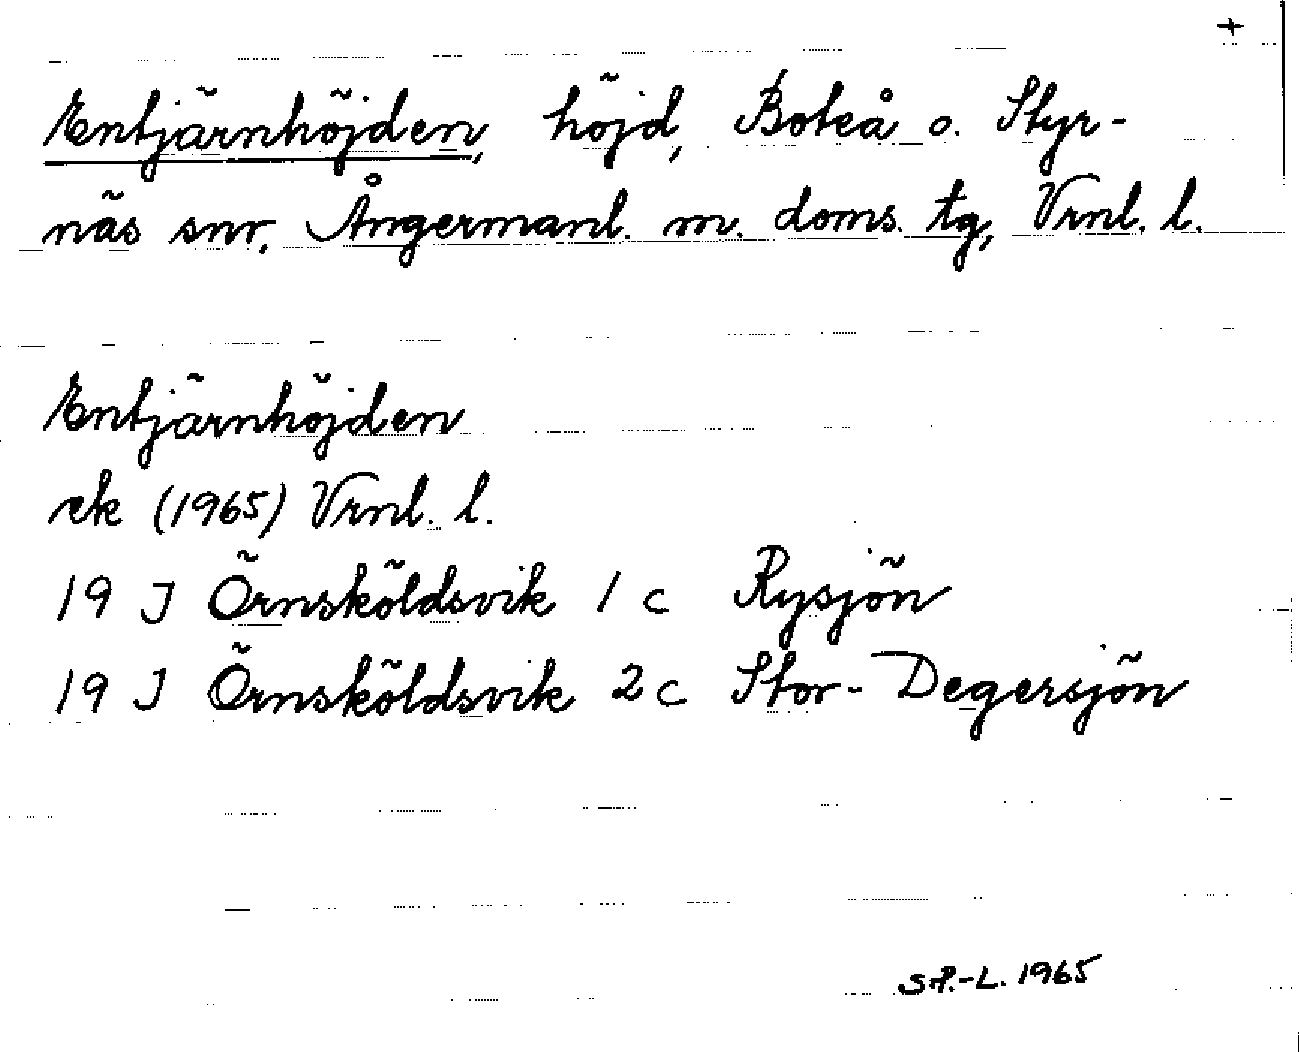 +
Entjärnhöjden, höjd, Boteå o. Styr-
näs snr, Ångermanl. m. doms. tg, Vrnl. l.
Entjärnhöjden
ek (1965) Vrnl. l.
19 J Örnsköldsvik 1 c Rysjön
19 J Örnsköldsvik 2 c Stor-Degersjön
S P.-L. 1965